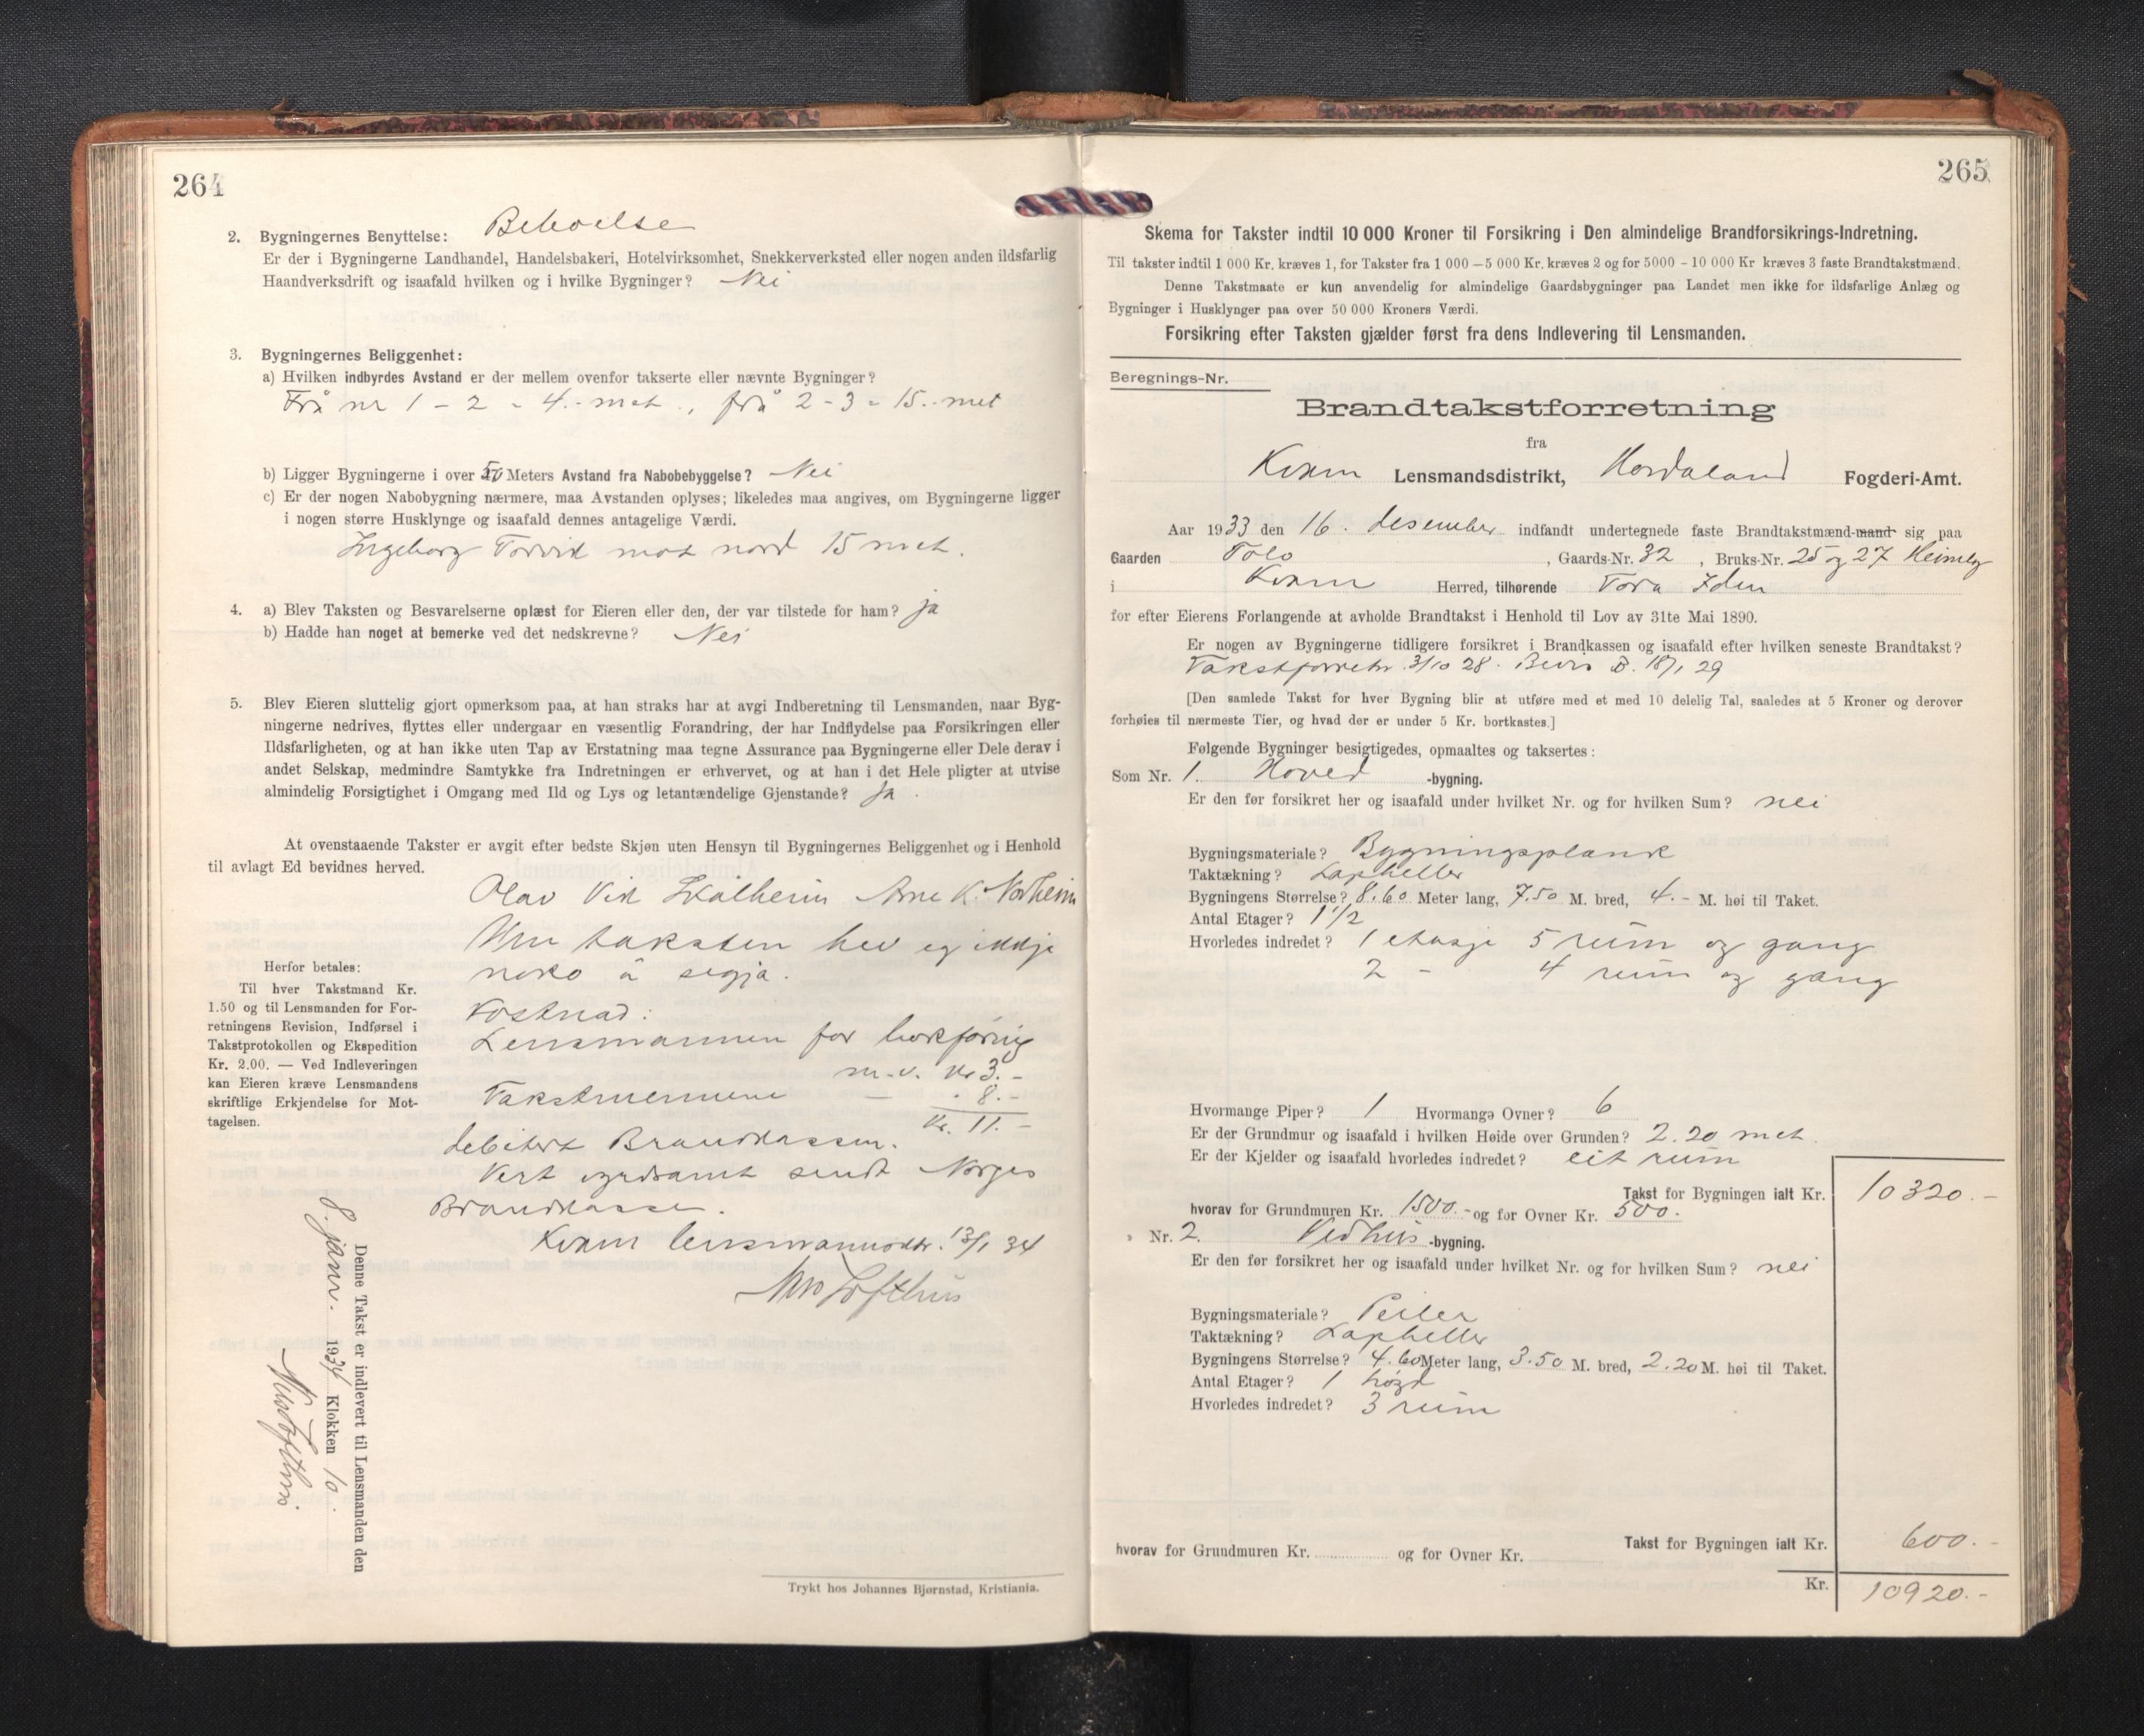 264
2. Bygningernes Benyttelse: Beboelse
Er der i Bygningerne Landhandel, Handelsbakeri, Hotelvirksomhet, Snekkerverksted eller nogen anden ildsfarlig
Haandverksdrift og isaafald hvilken og i hvilke Bygninger? Nei
3. Bygningernes Beliggenhet:
a) Hvilken indbyrdes Avstand er der mellem ovenfor takserte eller nævnte Bygninger?
Frå nr 1 - 2 = 4.- met., frå 2 - 3 = 15.- met
b) Ligger Bygningerne i over 50 Meters Avstand fra Nabobebyggelse? Nei
c) Er der nogen Nabobygning nærmere, maa Avstanden oplyses; likeledes maa angives, om Bygningerne ligger
i nogen større Husklynge og isaafald dennes antagelige Værdi.
Ingeborg Torvid mot nord 15 met.
4. a) Blev Taksten og Besvarelserne oplæst for Eieren eller den, der var tilstede for ham? ja
b) Hadde han noget at bemerke ved det nedskrevne? Nei
5. Blev Eieren sluttelig gjort opmerksom paa, at han straks har at avgi Indberetning til Lensmanden, naar Byg-
ningerne nedrives, flyttes eller undergaar en væsentlig Forandring, der har Indflydelse paa Forsikringen eller
Ildsfarligheten, og at han ikke uten Tap av Erstatning maa tegne Assurance paa Bygningerne eller Dele derav i
andet Selskap, medmindre Samtykke fra Indretningen er erhvervet, og at han i det Hele pligter at utvise
almindelig Forsigtighet i Omgang med Ild og Lys og letantændelige Gjenstande? Ja
At ovenstaaende Takster er avgit efter bedste Skjøn uten Hensyn til Bygningernes Beliggenhet og i Henhold
til avlagt Ed bevidnes herved.
Olav Vik Skålheim Arne K. Nordheim
Um taksten hev eg ikkje
noko å segja.
Kostnad:
Lensmannen for bokføring
m.v. Kr 3.-
Takstmennene - " 8.-
Kr. 11.-
debitert Brandkassen.
Vert sendt Norges
Brandkasse.
Kvam lensmannsktr. 13/1 34
Lofthus
Herfor betales:
Til hver Takstmand Kr.
1.50 og til Lensmanden for For-
retningens Revision, Indførsel i
Takstprotokollen og Ekspedition
Kr. 2.00. — Ved Indleveringen
kan Eieren kræve Lensmandens
skriftlige Erkjendelse for Mot-
tagelsen.
Denne Takst er indlevert til Lensmanden den
8. janr. 1934 Klokken 10.
Lofthus
Trykt hos Johannes Bjørnstad, Kristiania.
265
Skema for Takster indtil 10 000 Kroner til Forsikring i Den almindelige Brandforsikrings-Indretning.
Til takster indtil 1 000 Kr. kræves 1, for Takster fra 1 000 – 5 000 Kr. kræves 2 og for 5000 – 10 000 Kr kræves 3 faste Brandtakstmænd.
Denne Takstmaate er kun anvendelig for almindelige Gaardsbygninger paa Landet men ikke for ildsfarlige Anlæg og
Bygninger i Husklynger paa over 50 000 Kroners Værdi.
Forsikring efter Taksten gjælder først fra dens Indlevering til Lensmanden.
Beregnings-Nr.
Brandtakstforretning
fra
Kvam Lensmandsdistrikt, Hordaland Fogderi-Amt.
Aar 1933 den 16. desember indfandt undertegnede faste Brandtakstmænd-mand sig paa
Gaarden Tolo, Gaards-Nr. 32, Bruks-Nr. 25 og 27 Heimly
i Kvam Herred, tilhørende Tora Iden
for efter Eierens Forlangende at avholde Brandtakst i Henhold til Lov av 31te Mai 1890.
Er nogen av Bygningerne tidligere forsikret i Brandkassen og isaafald efter hvilken seneste Brandtakst?
Takstforretn. 3/10 28. Bevis B. 18/1 29
[Den samlede Takst for hver Bygning blir at utføre med et med 10 delelig Tal, saaledes at 5 Kroner og derover
forhøies til nærmeste Tier, og hvad der er under 5 Kr. bortkastes.]
Følgende Bygninger besigtigedes, opmaaltes og taksertes:
Som Nr. 1. Hoved -bygning.
Er den før forsikret her og isaafald under hvilket Nr. og for hvilken Sum? nei
Bygningsmateriale? Bygningsplank
Taktækning? Lapheller
Bygningens Størrelse? 8.60 Meter lang, 7.50 M. bred, 4.- M. høi til Taket.
Antal Etager? 1 1/2
Hvorledes indredet? 1 etasje 5 rum og gang
2 - 4 rum og gang
Hvormange Piper? 1 Hvormange Ovner? 6
Er der Grundmur og isaafald i hvilken Høide over Grunden? 2.20 met.
Er der Kjelder og isaafald hvorledes indredet? eit rum
Takst for Bygningen ialt Kr. 10320.-
hvorav for Grundmuren Kr. 1500.- og for Ovner Kr. 500.-
Nr. 2. Vedhus -bygning.
Er den før forsikret her og isaafald under hvilket Nr. og for hvilken Sum? nei
Bygningsmateriale? Peiler
Taktækning? Lapheller
Bygningens Størrelse? 4.60 Meter lang, 3.50 M. bred, 2.20 M. høi til Taket.
Antal Etager? 1 høgd
Hvorledes indredet? 3 rum
Takst for Bygningen ialt Kr. 600.-
hvorav for Grundmuren Kr. og for Ovner Kr.
Kr. 10920.-